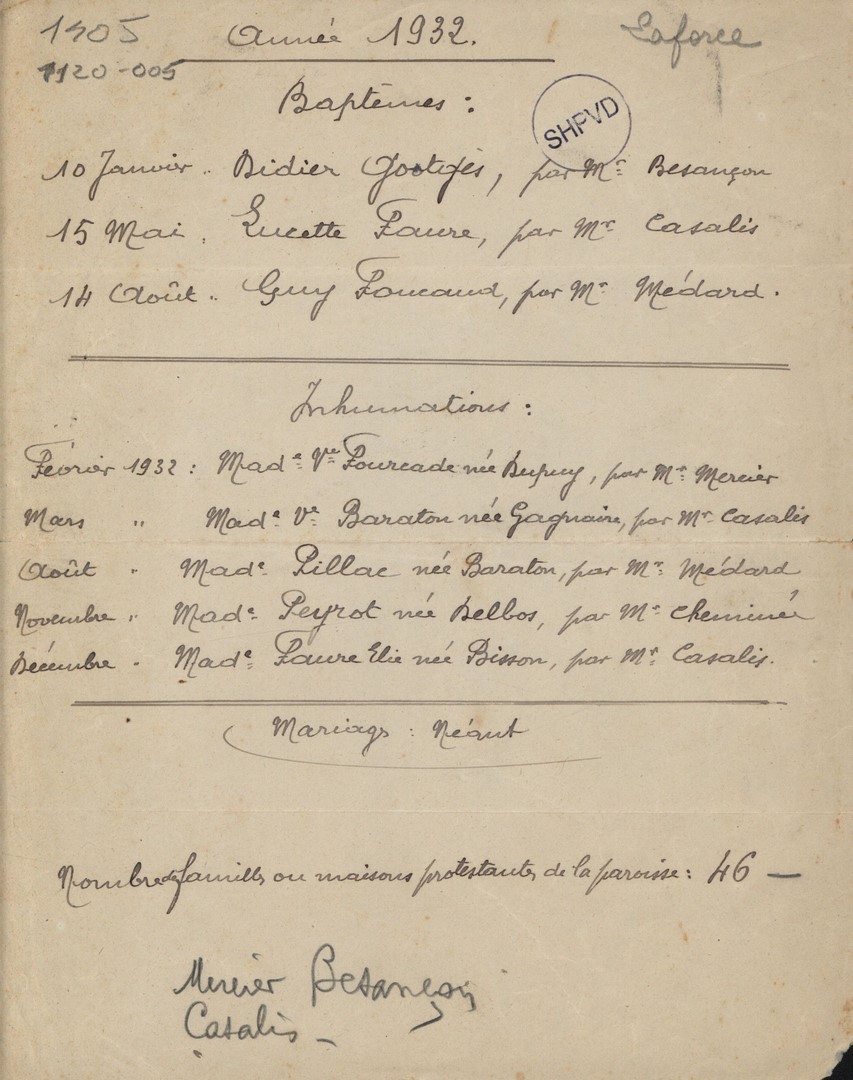 1405 Année 1932. Laforce
1120-005
Baptêmes :
SHPVD
10 Janvier .. Didier par Mr Besançon
15 Mai . Lucette Faure, par Mr Casalis
14 Août .. Guy Foucaud, par Mr Médard .
Inhumations :
Février 1932 : Made Vve Fourcade née Dupuy, par Mr Mercier
Mars " Made Ve Baraton née Gagnaire, par Mr Casalis
Août " Made Pillac née Baraton, par Mr Médard
Novembre " Made Peyrot née Delbos, par Mr Cheminée
Décembre " Made Faure Elie née Bisson, par Mr Casalis.
Mariages : Néant
Nombre de familles ou maisons protestantes de la paroisse : 46 —
Mercier Besançon
Casalis –